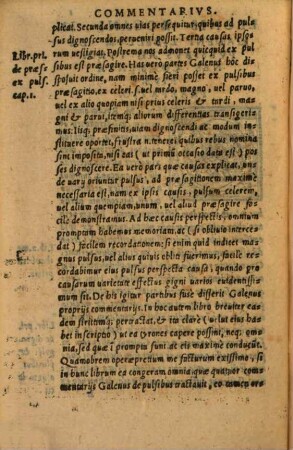 COMMENTARIVS.
plicat. Secunda omnes vias persequitur, quibus ad pul
sus dignoscendos, perueniri possit. Tertia causas, ipso
rum uestigat. Postremo nos admonet quicquid ex pul
sibus est præsagire. Has uero partes Galenus hôc di
sposuit ordine, nam minimè fieri posset ex pulsibus
præsagitio, ex celeri, uel tardo, magno, uel paruo,
uel ex alio quopiam nisi prius celeris & tardi, ma
gni & parui, itemq; aliorum differentias transigeri
mus. Itaq; præfinitis, uiam dignoscendi ac modum in
stituere oportet, frustra n. teneri quibus rebus nomina
sint imposita, nisi eas ( ut primũ occasio data est ) pos
ses dignoscere. Ea uerò pars quæ causas explicat, un
de uarij oriuntur pulsus, ad præsagitionem maximè
necessaria est, nam ex ipsis causis, pulsum celerem,
uel alium quempiam, unum, uel aliud præsagire fa
cilè demonstramus. Ad hæc causis perspectis, omnium
promptam habemus memoriam, ac ( si obliuio interce
dat ) facilem recordationem: si enim quid indicet ma
gnus pulsus, uel alius quiuis obliti fuerimus, facilè re
cordabimur eius pulsus perspecta causa, quando pro
causarum uarietate effectus gigni uarios euidentissi
mum sit. De his igitur partibus fusè disserit Galenus
proprijs commentarijs. In hoc autem libro breuiter ea
dem strictimq; pertractat, & ita clarè ( ut lut eius has
bet inscriptio ) ut ea tyrones capere possint, neq; omnia
, sed quæ i promptu sunt at eis maximè conducũt.
Quamobrem operæpretium me facturum existimo, si
in hunc librum ea congeram omnia quæ quatuor com
mentarijs Galenus de pulsibus tractauit,
Libr. pri.
de præs.
ex puls.
cap. 1.